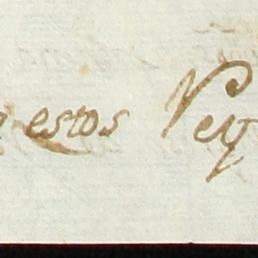 estos Rey